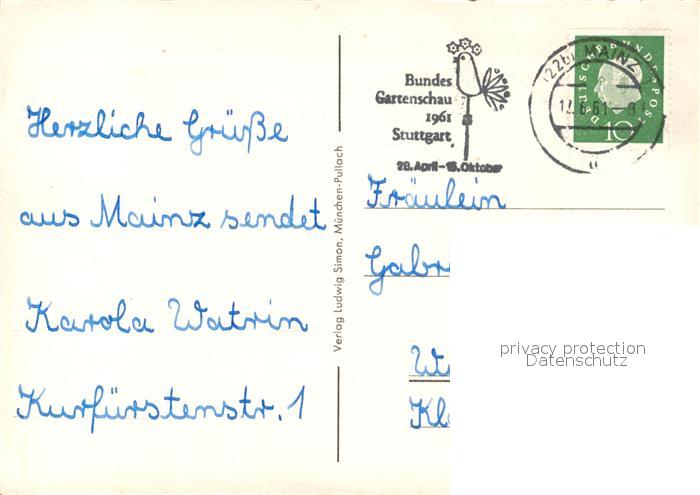 Herzliche Grüße
aus Mainz sendet
Karola Watrin
Kurfürstenstr. 1
Verlag Ludwig Simon, München-Pullach
Bundes
Gartenschau
1961
Stuttgart
28. April – 15. Oktober
(22b) MAINZ
DEUTSCHE BUNDESPOST
10
Fräulein
privacy protection
Datenschutz